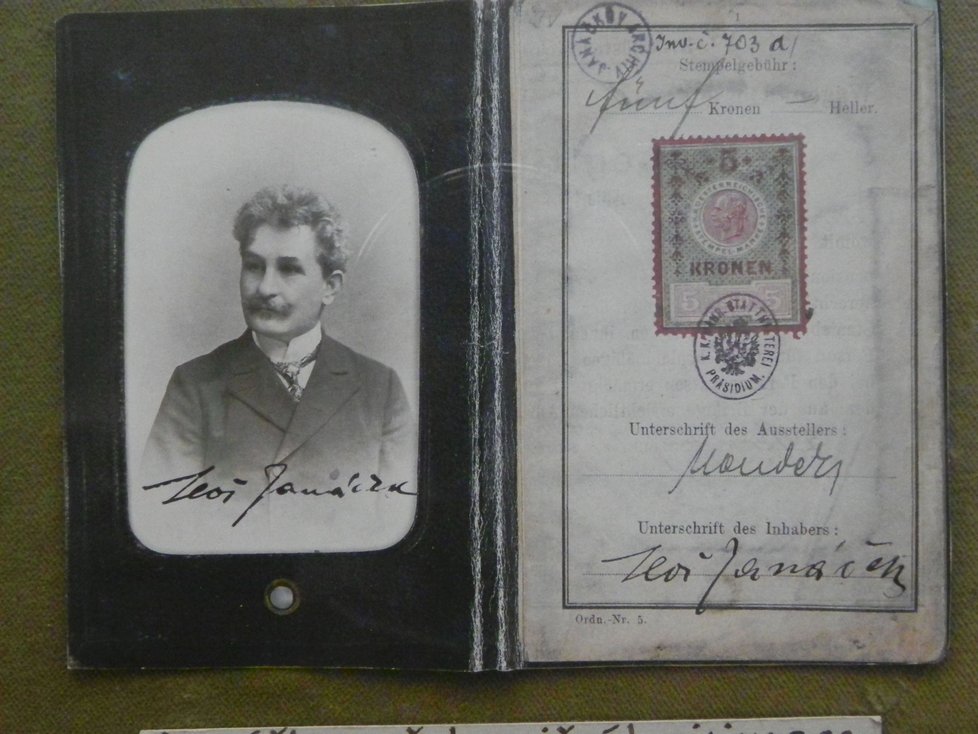 Leoš Janáček
JANÁČKŮV ARCHIV
1
Inv. č. 703 a/
Stempelgebühr:
fünf Kronen — Heller.
5
KRONEN
5 5
K.K. STATTHALTEREI PRÄSIDIUM.
Unterschrift des Ausstellers:
Unterschrift des Inhabers:
Leoš Janáček
Ordn.-Nr. 5.